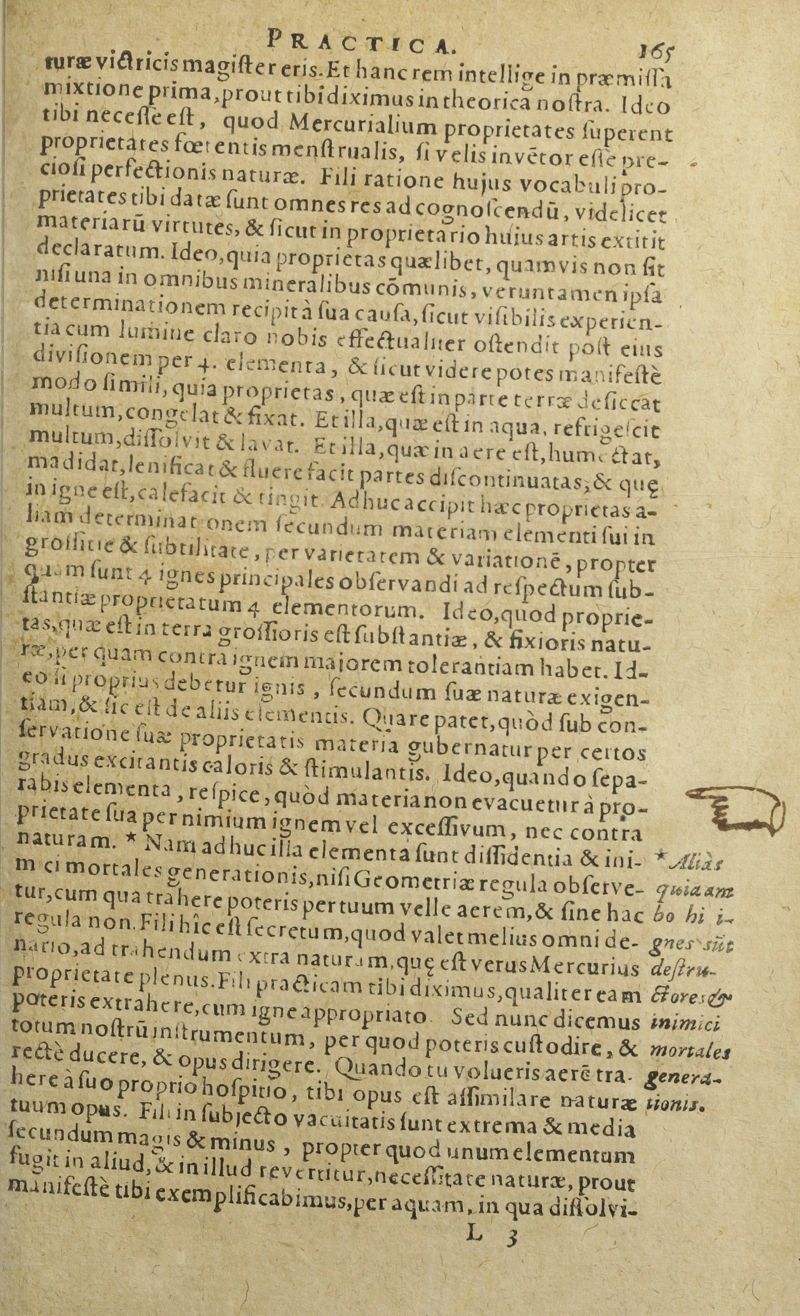 PRACTICA. 165
turæ victricis magister eris. Et hanc rem intellige in præmissa
mixtione prima, prout tibi diximus in theoricâ nostra. Ideo
tibi necesse est, quod Mercurialium proprietates superent
proprietates fœtentis menstrualis, si velis invētor esse pre-
ciosi perfectionis naturæ. Fili ratione hujus vocabuli pro-
prietates tibi datæ sunt omnes res ad cognoscendū, videlicet
materiarū virtutes, & sicut in proprietario huius artis extitit
declaratum. Ideo, quia proprietas quælibet, quamvis non sit
nisi una in omnibus mineralibus cōmunis, veruntamen ipsa
determinationem recipit à sua causa, sicut visibilis experien-
tia cum lumine claro nobis effectualiter ostendit post eius
divisionem per 4. elementa, & sicut videre potes manifestè
modo simili, quia proprietas, quæ est in parte terræ desiccat
multum, congelat & fixat. Et illa, quæ est in aqua, refrigescit
multum, dissolvit & lavat. Et illa, quæ in aere est, humectat,
madidat, lenificat & fluere facit partes discontinuatas, & quę
in igne est, calefacit & tingit. Adhuc accipit hæc proprietas a-
liam determinationem secundum materiam elementi sui in
grossitie & subtilitate, per varietatem & variationē, propter
quam sunt 4 ignes principales observandi ad respectum sub-
stantiæ proprietatum 4 elementorum. Ideo, quod proprie-
tas, quæ est in terra grossioris est substantiæ, & fixioris natu-
ræ, per quam contra ignem maiorem tolerantiam habet. Id-
eo si proprius debetur ignis, secundum suæ naturæ exigen-
tiam, & sic est de aliis elementis. Quare patet, quòd sub con-
servatione suæ proprietatis materia gubernatur per certos
gradus excitantis caloris & stimulantis. Ideo, quando sepa-
rabis elementa, respice, quòd materia non evacuetur à pro-
prietate sua per nimium ignem vel excessivum, nec contra
naturam. * Nam adhuc illa elementa sunt diffidentia & ini- * Aliàs
m ci mortales generationis, nisi Geometriæ regula observe- quia am
tur, cum qua trahere poteris per tuum velle aerem, & sine hac bo hi i-
regula non. Fili hîc est secretum, quod valet melius omni de- gnes sūt
nario, ad trahendum extra naturam, quę est verus Mercurius destru-
proprietate plenus. Fili practicam tibi diximus, qualiter eam ctores &
poteris extrahere, cum igne appropriato. Sed nunc dicemus inimici
totum nostrū instrumentum, per quod poteris custodire, & mortales
rectè ducere, & opus dirigere. Quando tu volueris aerē tra- genera-
here à suo proprio hospitio, tibi opus est assimilare naturæ tionis.
tuum opus. Fili in subjecto vacuitatis sunt extrema & media
secundum magis & minus, propter quod unum elementum
fugit in aliud, & in illud revertitur, necessitate naturæ, prout
manifestè tibi exemplificabimus, per aquam, in qua dissolvi-
L 3